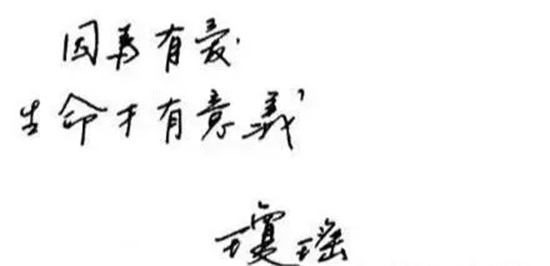 因為有愛
生命才有意義
瓊瑤